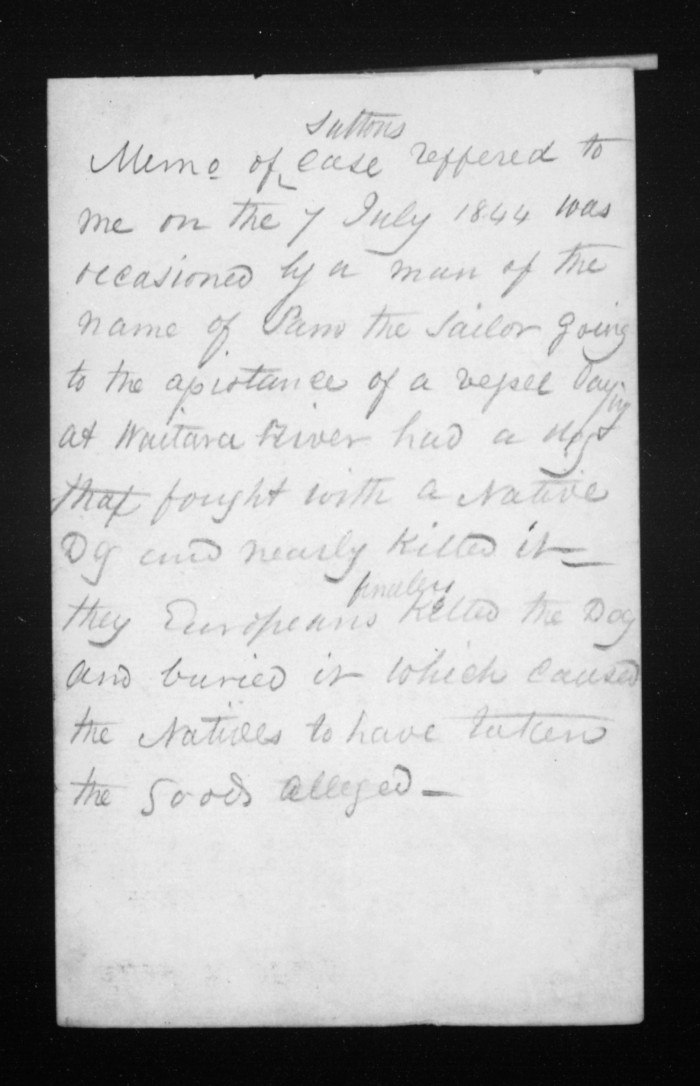 Suttons
Memo of case reffered to
me on the 7 July 1844 was
occasioned by a man of the
name of Sam the Sailor going
to the assistance of a vessel Laying
at Waitara River had a dog
that fought with a Native
Dg and nearly Killed it —
finaley
they Europeans Killed the Dog
and buried it which caused
the Natives to have taken
the Goods alleged —